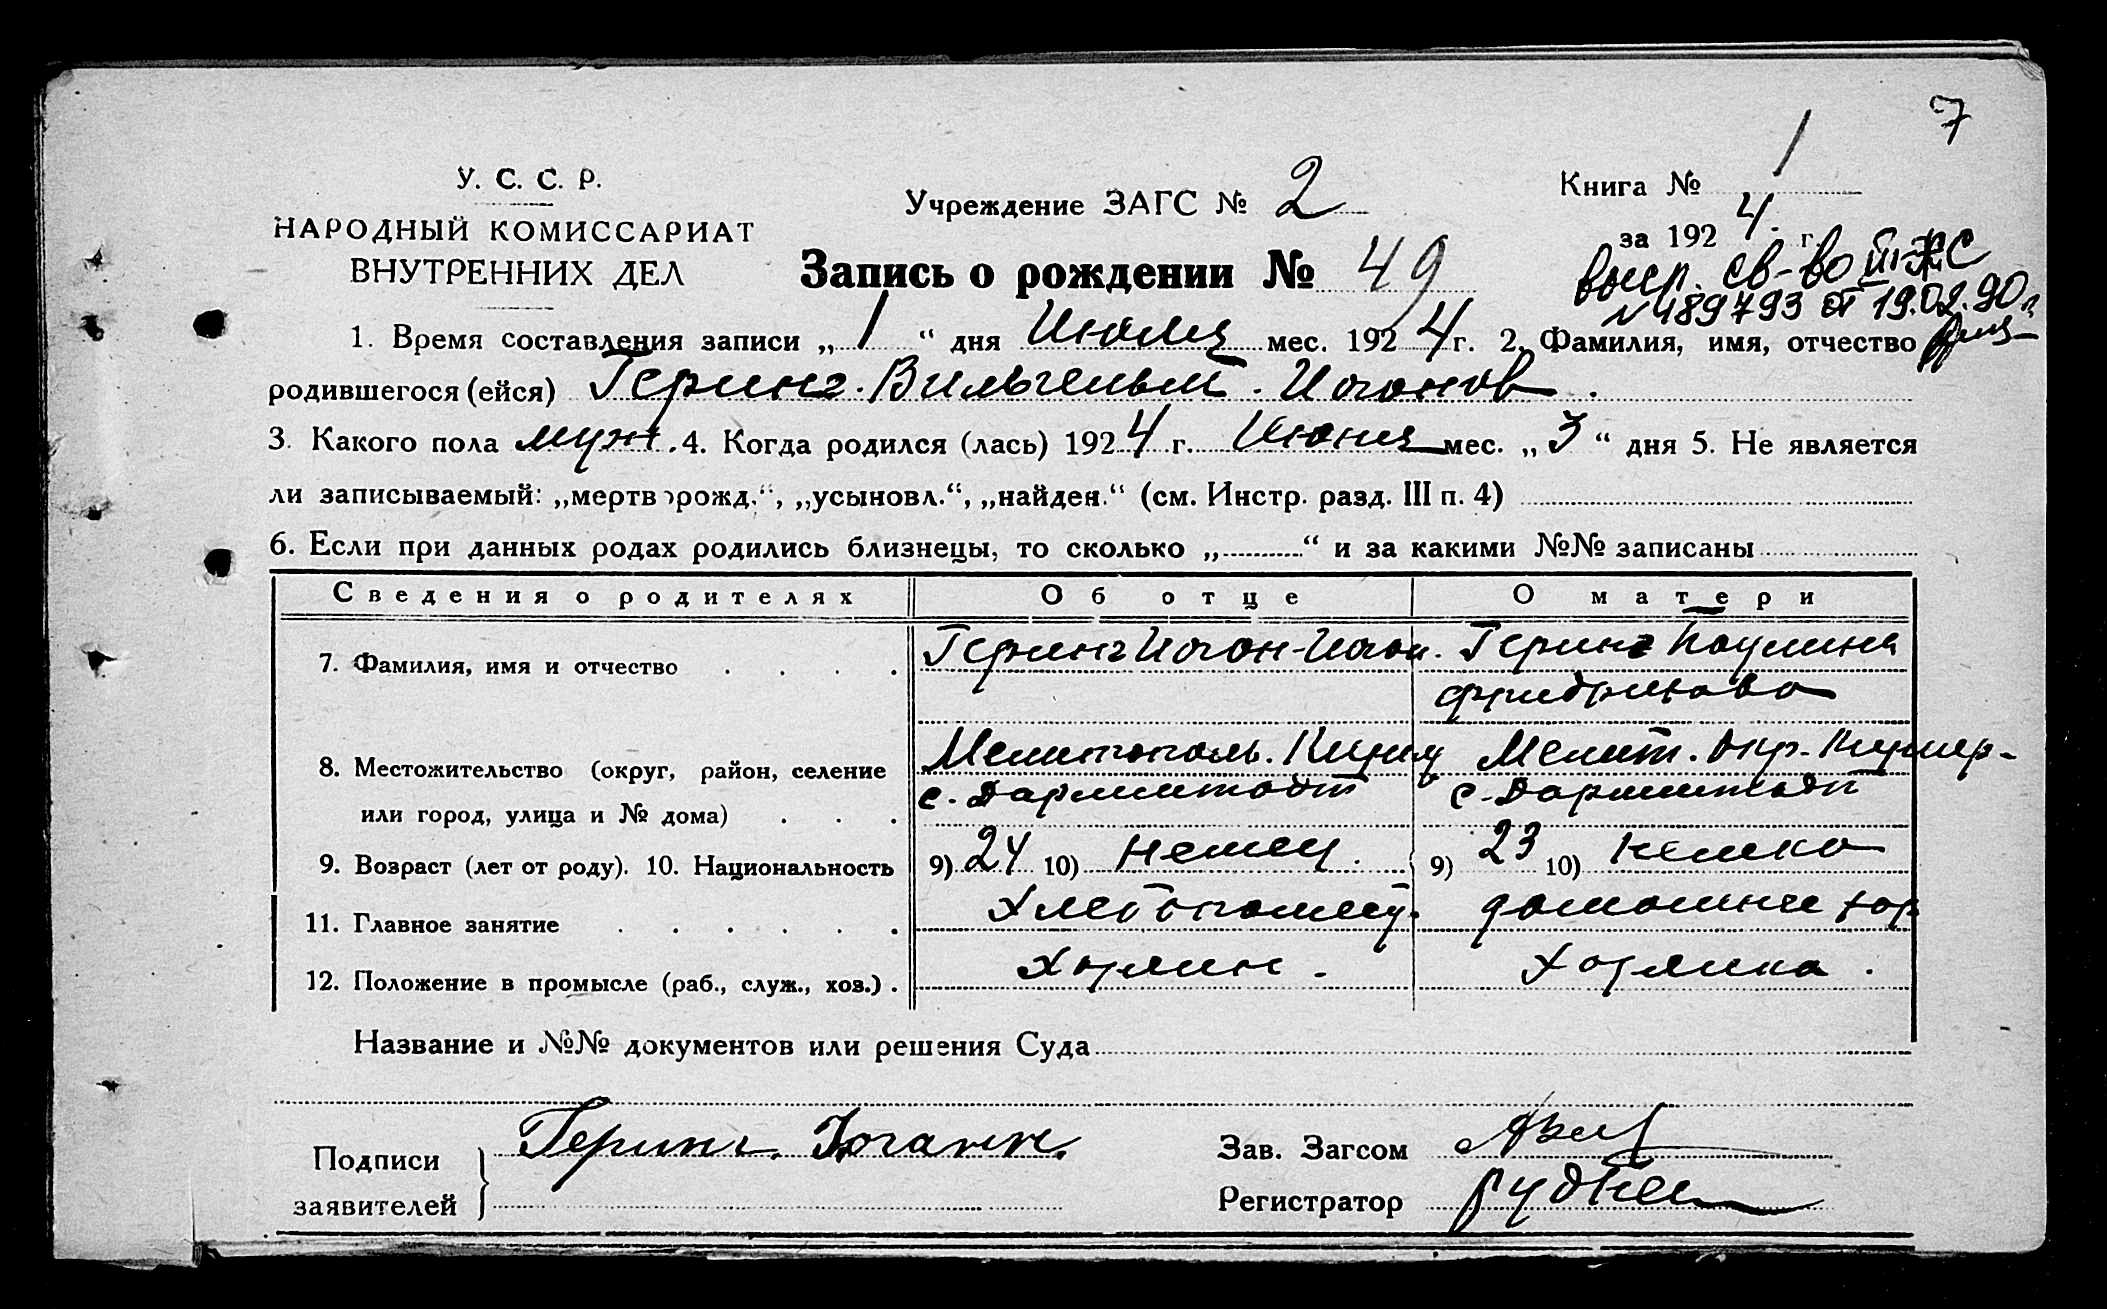 7
У. С. С. Р.
НАРОДНЫЙ КОМИССАРИАТ
ВНУТРЕННИХ ДЕЛ
Учреждение ЗАГС № 2
Книга № 1
за 1924 г.
Запись о рождении № 49
св-во
№ 489793 от 19.02.90г
1. Время составления записи „1“ дня Июля мес. 1924 г. 2. Фамилия, имя, отчество
родившегося (ейся) Геринг. Вильгельм. Иоганов.
3. Какого пола муж. 4. Когда родился (лась) 1924 г. Июня мес. „3“ дня 5. Не является
ли записываемый: „мертворожд.“, „усыновл.“, „найден.“ (см. Инстр. разд. III п. 4)
6. Если при данных родах родились близнецы, то сколько „ “ и за какими №№ записаны
Сведения о родителях Об отце О матери
7. Фамилия, имя и отчество Геринг Иоган-Иоган. Геринг Паулина
Фридрихова
8. Местожительство (округ, район, селение Мелитополь. Мелит. Окр.
или город, улица и № дома) с. Дармштадт с. Дармштадт
9. Возраст (лет от роду). 10. Национальность 9) 24 10) немец. 9) 23 10) немка
11. Главное занятие Хлебопашец. домашнее хоз
12. Положение в промысле (раб., служ., хоз.) Хозяин. Хозяйка.
Название и №№ документов или решения Суда
Подписи заявителей Геринг. Иоганн.
Зав. Загсом
Регистратор